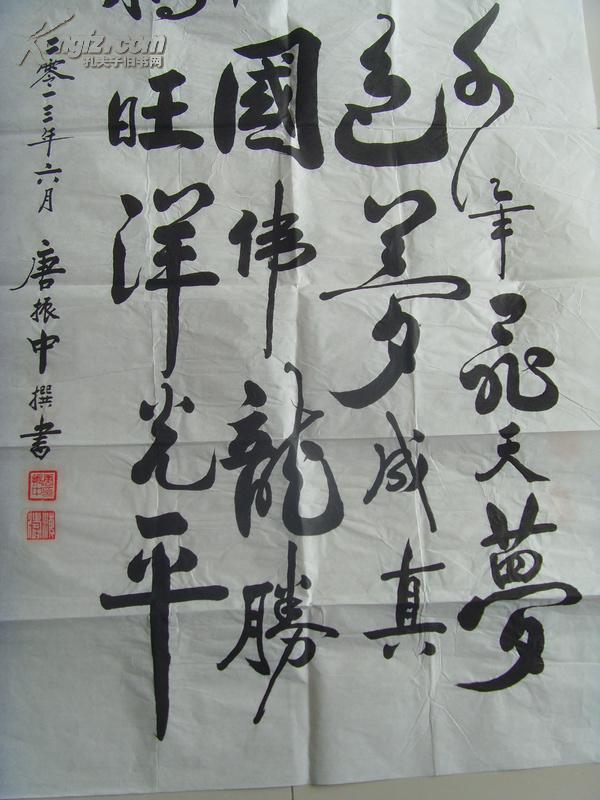 千年飛天夢
色夢成真
國伟龍勝
旺洋光平
二零一三年六月
唐振中撰書
Kongfz.com
孔夫子旧书网